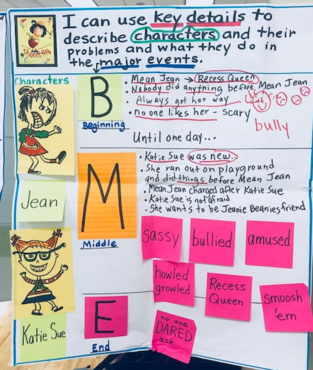 I can use key details to
describe characters and their
problems and what they do in
the major events.
Characters
B
Beginning
• Mean Jean → Recess Queen
• Nobody did anything before Mean Jean
• Always got her way
• no one likes her - scary
bully
Until one day...
Jean
M
Middle
• Katie Sue was new.
• She ran out on playground
and did things before Mean Jean
• Mean Jean charged after Katie Sue
• Katie Sue is not afraid
• She wants to be Jeanie Beanies friend
sassy
bullied
amused
howled
growled
Recess
Queen
smoosh
'em
Katie Sue
E
End
no one
DARED
ask